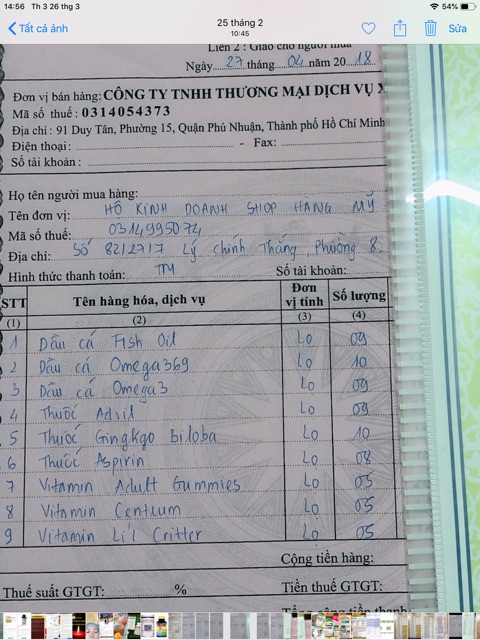 14:56 Th 3 26 thg 3
54%
Tất cả ảnh
25 tháng 2
10:45
Sửa
Liên 2 : Giao cho người mua
Ngày 27 tháng 04 năm 2018
Đơn vị bán hàng: CÔNG TY TNHH THƯƠNG MẠI DỊCH VỤ
Mã số thuế : 0314054373
Địa chỉ : 91 Duy Tân, Phường 15, Quận Phú Nhuận, Thành phố Hồ Chí Minh
Điện thoại : - Fax:
Số tài khoản :
Họ tên người mua hàng:
Tên đơn vị: HỘ KINH DOANH SHOP HÀNG MỸ
Mã số thuế: 0314995074
Địa chỉ: Số 82/27/7 Lý Chính Thắng, Phường 8
Hình thức thanh toán: TM Số tài khoản:
STT Tên hàng hóa, dịch vụ Đơn vị tính Số lượng
(1) (2) (3) (4)
1 Dầu cá Fish Oil Lo 09
2 Dầu cá Omega369 Lo 10
3 Dầu cá Omega3 Lo 09
4 Thuốc Advil Lo 09
5 Thuốc Gingkgo Biloba Lo 10
6 Thuốc Aspirin Lo 08
7 Vitamin Adult Gummies Lo 05
8 Vitamin Centrum Lo 05
9 Vitamin Li'l Critter Lo 05
Cộng tiền hàng:
Thuế suất GTGT: % Tiền thuế GTGT: